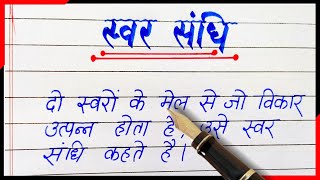 स्वर संधि
दो स्वरों के मेल से जो विकार
उत्पन्न होता है उसे स्वर
संधि कहते है।